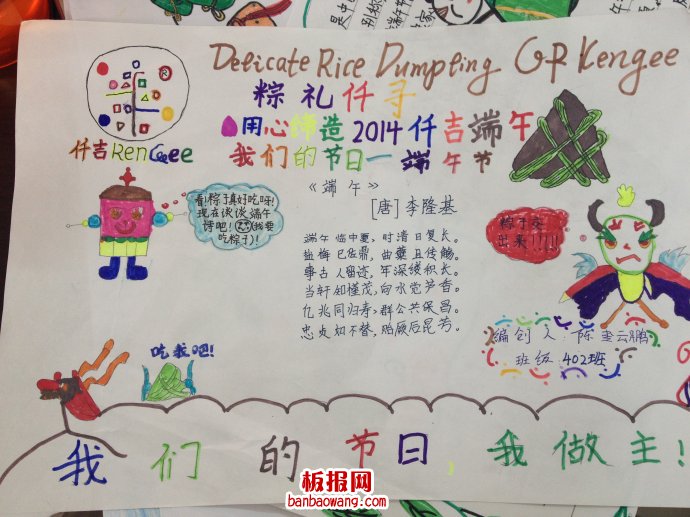 Delicate Rice Dumpling GP Kengee
粽礼仟寻
用心缔造2014仟吉端午
我们的节日一端午节
仟吉KenGee
《端午》
[唐]李隆基
端午临中夏，时清日复长。
盐梅已佐鼎，曲糵且传觞。
事古人留迹，年深缕积长。
当轩知槿茂，向水觉芦香。
亿兆同归寿，群公共保昌。
忠贞如不替，贻厥后昆芳。
看!粽子真好吃呀!
现在谈谈端午
诗吧!(我要
吃粽子)!
粽子交
出来!!!!!
编创人:陈奎云鹏
班级:402班
吃我吧!
我们的节日，我做主!
板报网
banbaowang.com